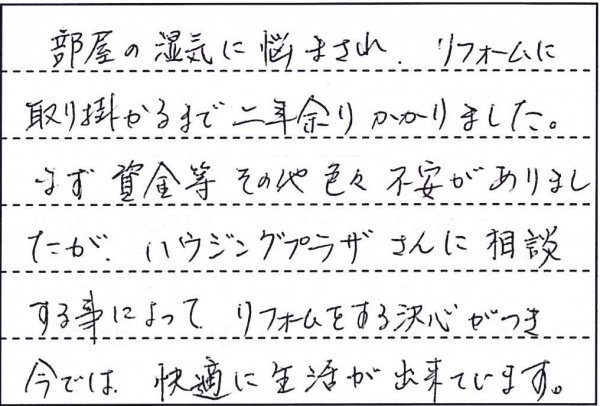 部屋の湿気に悩まされ、リフォームに
取り掛かるまで二年余りかかりました。
まず資金等その他色々不安がありまし
たが、ハウジングプラザさんに相談
する事によって、リフォームをする決心がつき
今では、快適に生活が出来ています。